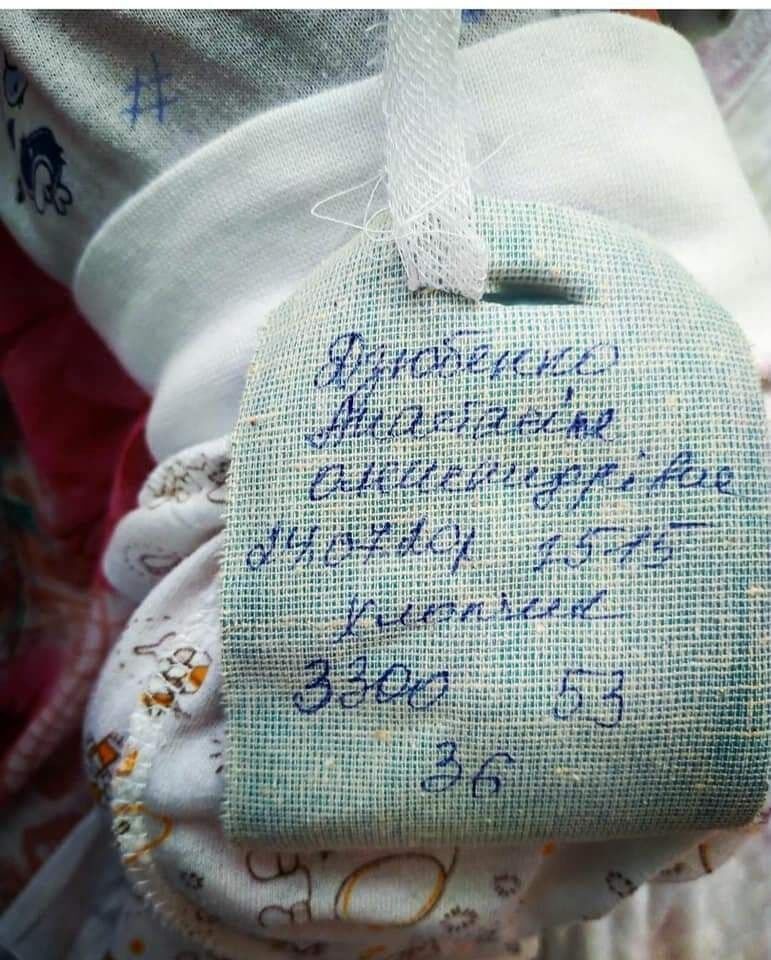 Дзюбенко
Анастасія
Олександрівна
24.07.20р 1515
хлопчик
3300 53
36